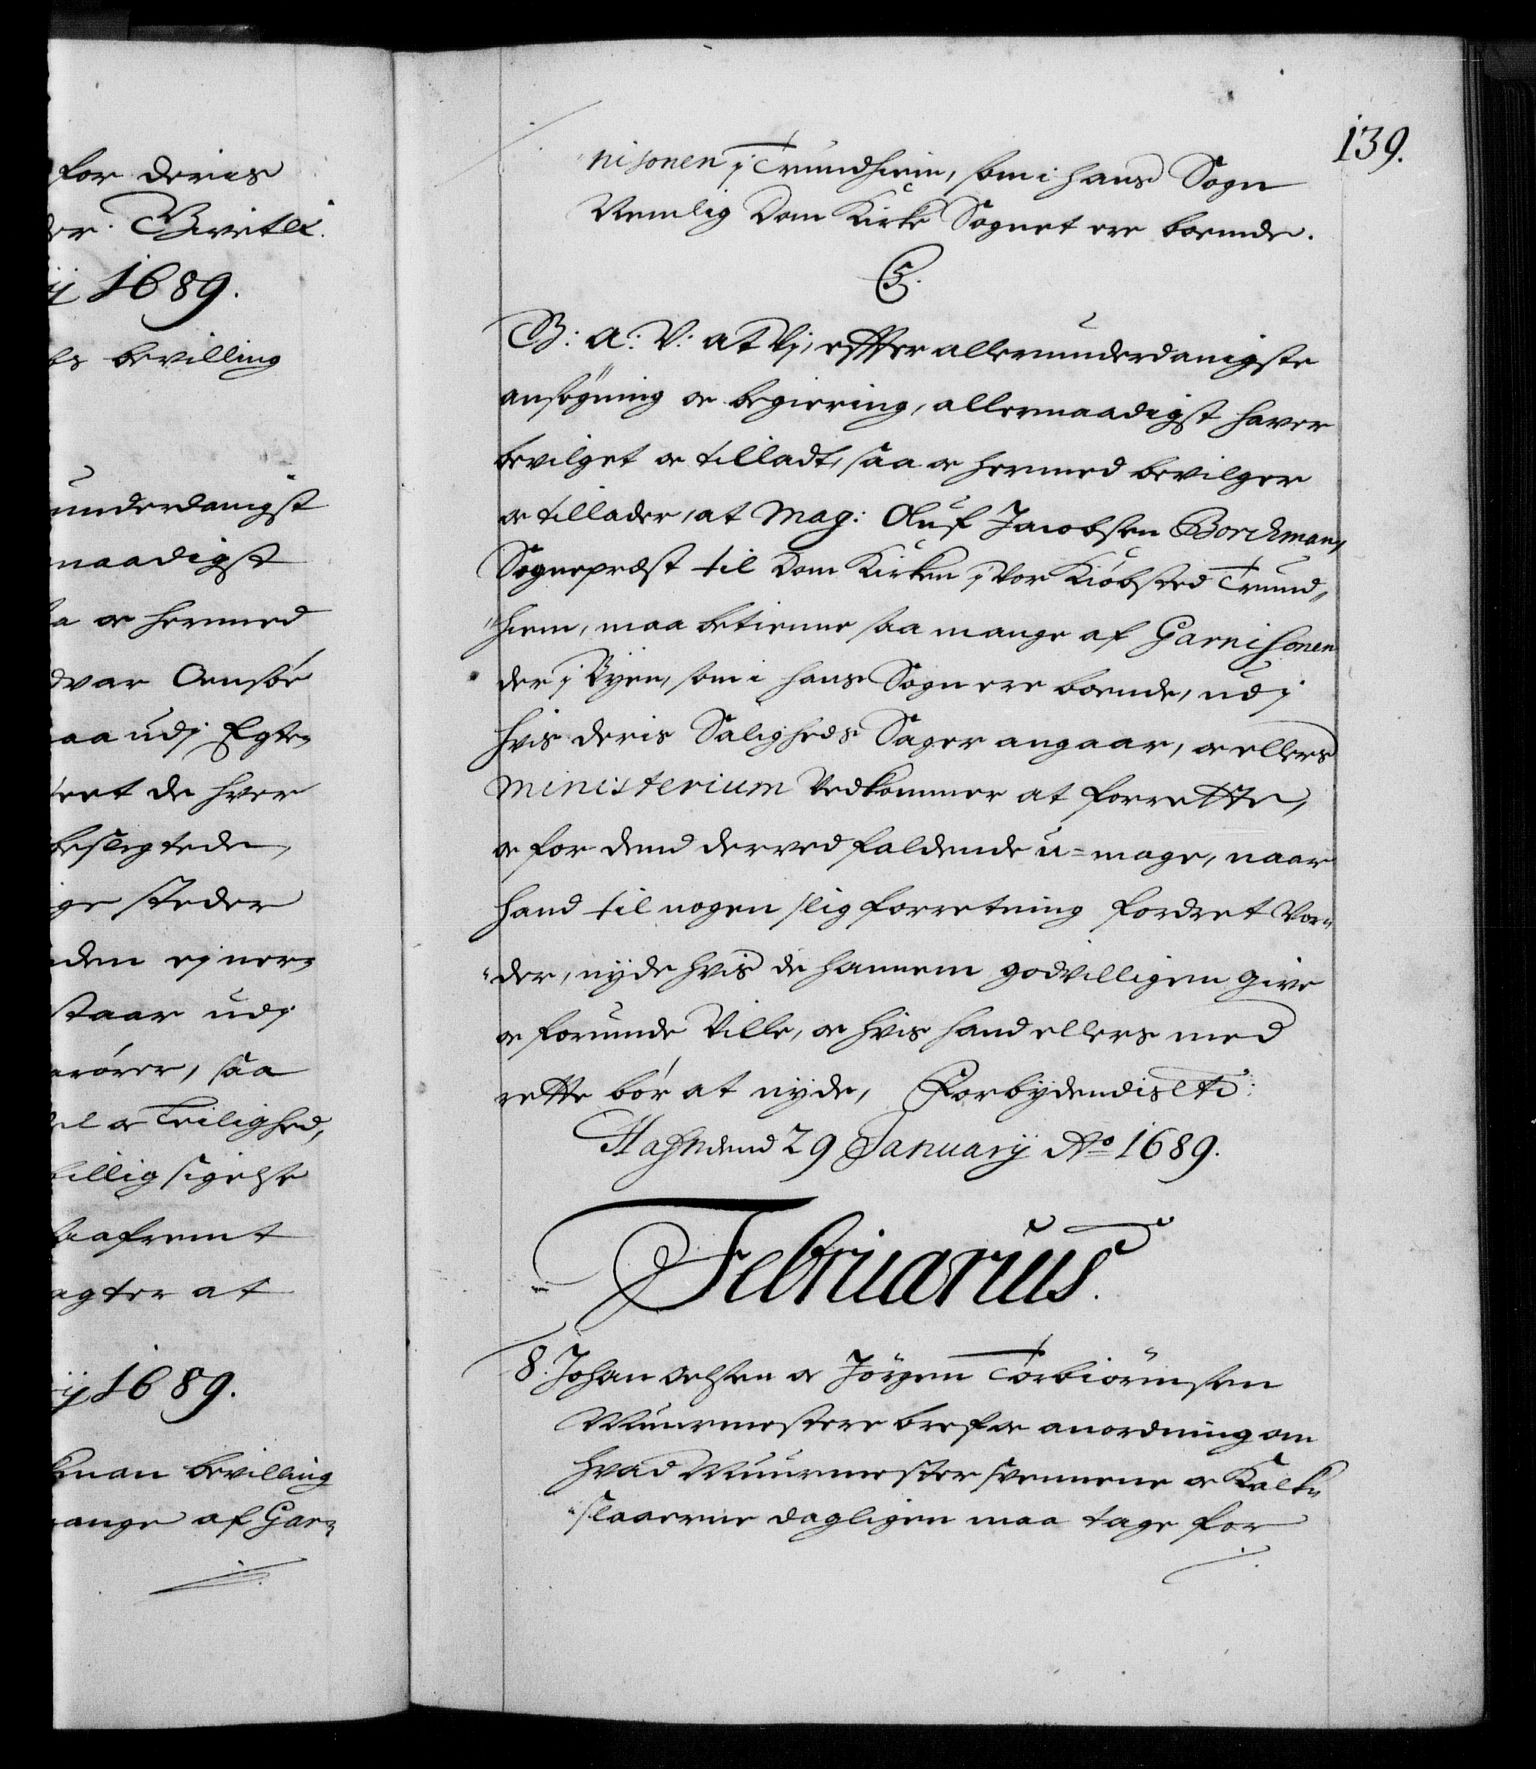 for deris
1689.
bevilling
underdanigst
naadigst
a oc hermed
dvar Oensöe
aa udj Egte„
eret de hver
besligtede,
ge steder
den ej ner„
staar udj
rörer, saa
el oc Leilighed,
billig sigelse
aafremt
agter at
1689.
kman bevilling
ange af Gar„
139.
nisonen j Trundhiem, som i hans Sogn
Nemlig Dom Kirke Sognet ere boende.
C5.
G: A: V: at Vj, effter allerunderdanigste
ansögning oc begiering, allernaadigst haver
bevilget oc tilladt, saa oc hermed bevilger
oc tillader, at Mag: Oluf Jacobsen Borckman,
Sognepræst til Dom Kirken j Vor Kiöbsted Trund„
„hiem, maa betienne saa mange af Garnisonen
der j Byen, som i hans Sogn ere boende, udj
hvis deris Saligheds Sager angaar, oc ellers
Ministerium Vedkommer at forrette,
oc for dend derved faldende u=mage, naar
hand til nogen slig forretning fordret Vor„
„der, nyde hvis de hannem godvilligen give
oc forunde Ville, oc hvis hand ellers med
rette bör at nyde, Forbydendis etc:
Hafn dend 29 Januarij Ao 1689.
Februarius.
8. Johan Oelsen oc Jörgen Torbiörnsen
Muurmestere bref oc anordning om
hvad Muurmester svennene oc Kalk„
„slaaerne dagligen maa tage for